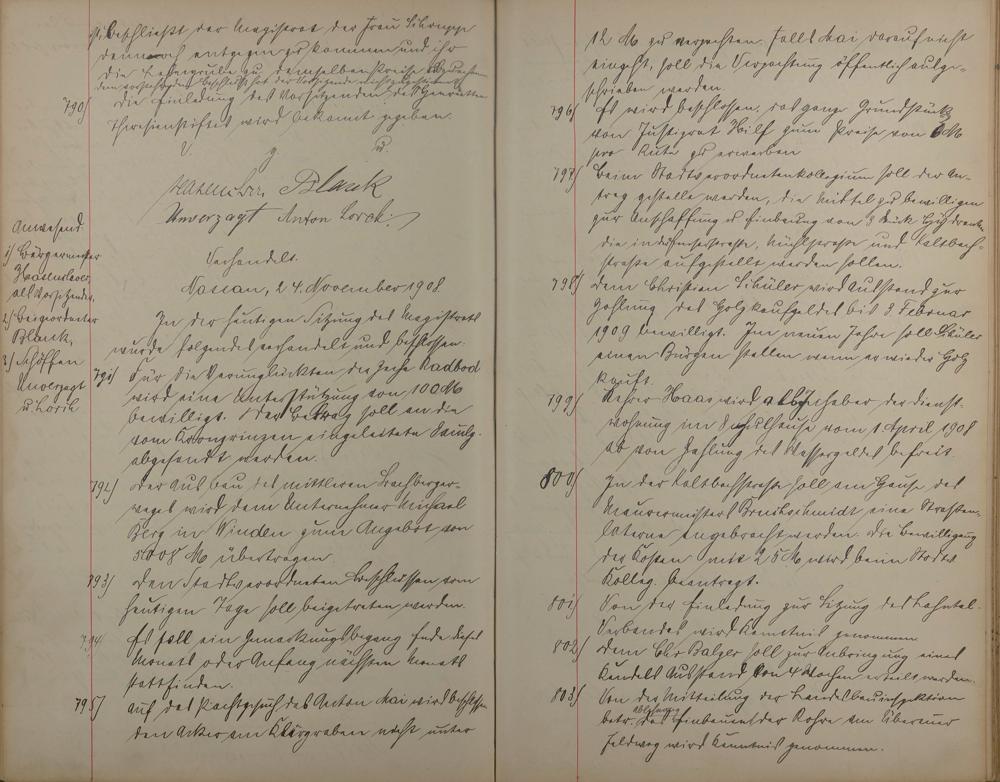 beschließt der Magistrat der Frau
dennoch entgegen zu kommen und ihr
die zu demselben Preise
790) Die Einladung des Vorsitzenden des
Theresienstiftes wird bekannt gegeben.
v. g. u.
Hasenclever. Blank
Unverzagt Anton Lorch.
Anwesend
1) Bürgermeister
Hasenclever,
als Vorsitzender,
2) Beigeordneter
Blank,
3) Schöffen
Unverzagt
u. Lorch
Verhandelt.
Nassau, 24. November 1908
In der heutigen Sitzung des Magistrats
wurde folgendes verhandelt und beschlossen:
791) Für die Verunglückten der Zeche Radbod
wird eine Unterstützung von 100 M
bewilligt. Der Betrag soll an die
vom Kronprinzen eingeleitete Samlg.
abgesandt werden.
792) Der Ausbau des mittleren
weges wird dem Unternehmer Michael
Berg in Winden zum Angebot von
M übertragen.
793) Den Stadtverordneten Beschlüssen vom
heutigen Tage soll beigetreten werden.
794) Es soll ein Gemarkungsbegang Ende dieses
Monats oder Anfang nächsten Monats
stattfinden.
795) Auf das Pachtgesuch des Anton Mai wird beschlossen
den Acker am Klärgraben nicht unter
12 M zu verpachten. Falls Mai darauf nicht
eingeht, soll die Verpachtung öffentlich ausge-
schrieben werden.
796) Es wird beschlossen, das ganze Grundstück
von Justizrat Hilf zum Preise von 6 M
pro Rute zu erwerben
797) Beim Stadtverordnetenkollegium soll der An-
trag gestellt werden, die Mittel zu bewilligen
zur Anschaffung u. Einbauung von 3 Stück
die in Mühlstraße und Kaltbach-
straße aufgestellt werden sollen.
798) Dem Christian Schüler wird Ausstand zur
Zahlung des Holzkaufgeldes bis 3. Februar
1909 bewilligt. Im neuen Jahre soll Schüler
einen Bürgen stellen wenn er wieder Holz
kauft.
799) Lehrer Haas wird als Inhaber der Dienst-
wohnung im Schulhause vom 1. April 1908
ab von Zahlung des Wassergeldes befreit.
800) In der Kaltbachstraße soll am Hause des
Maurermeisters eine Straßen-
laterne angebracht werden. Die Bewilligung
der Kosten mit 25 M wird beim Stadtv.
Kolleg. beantragt.
801) Von der Einladung zur Sitzung des Lahntal-
Verbandes wird Kenntnis genommen
802) Dem Chr Balzer soll zur Anbringung eines
Kandels Ausstand von 4 Wochen erteilt werden.
803) Von der Mitteilung der Landesbauinspektion
betr. Einbauen der Rohre am
Feldweg wird Kenntnis genommen.